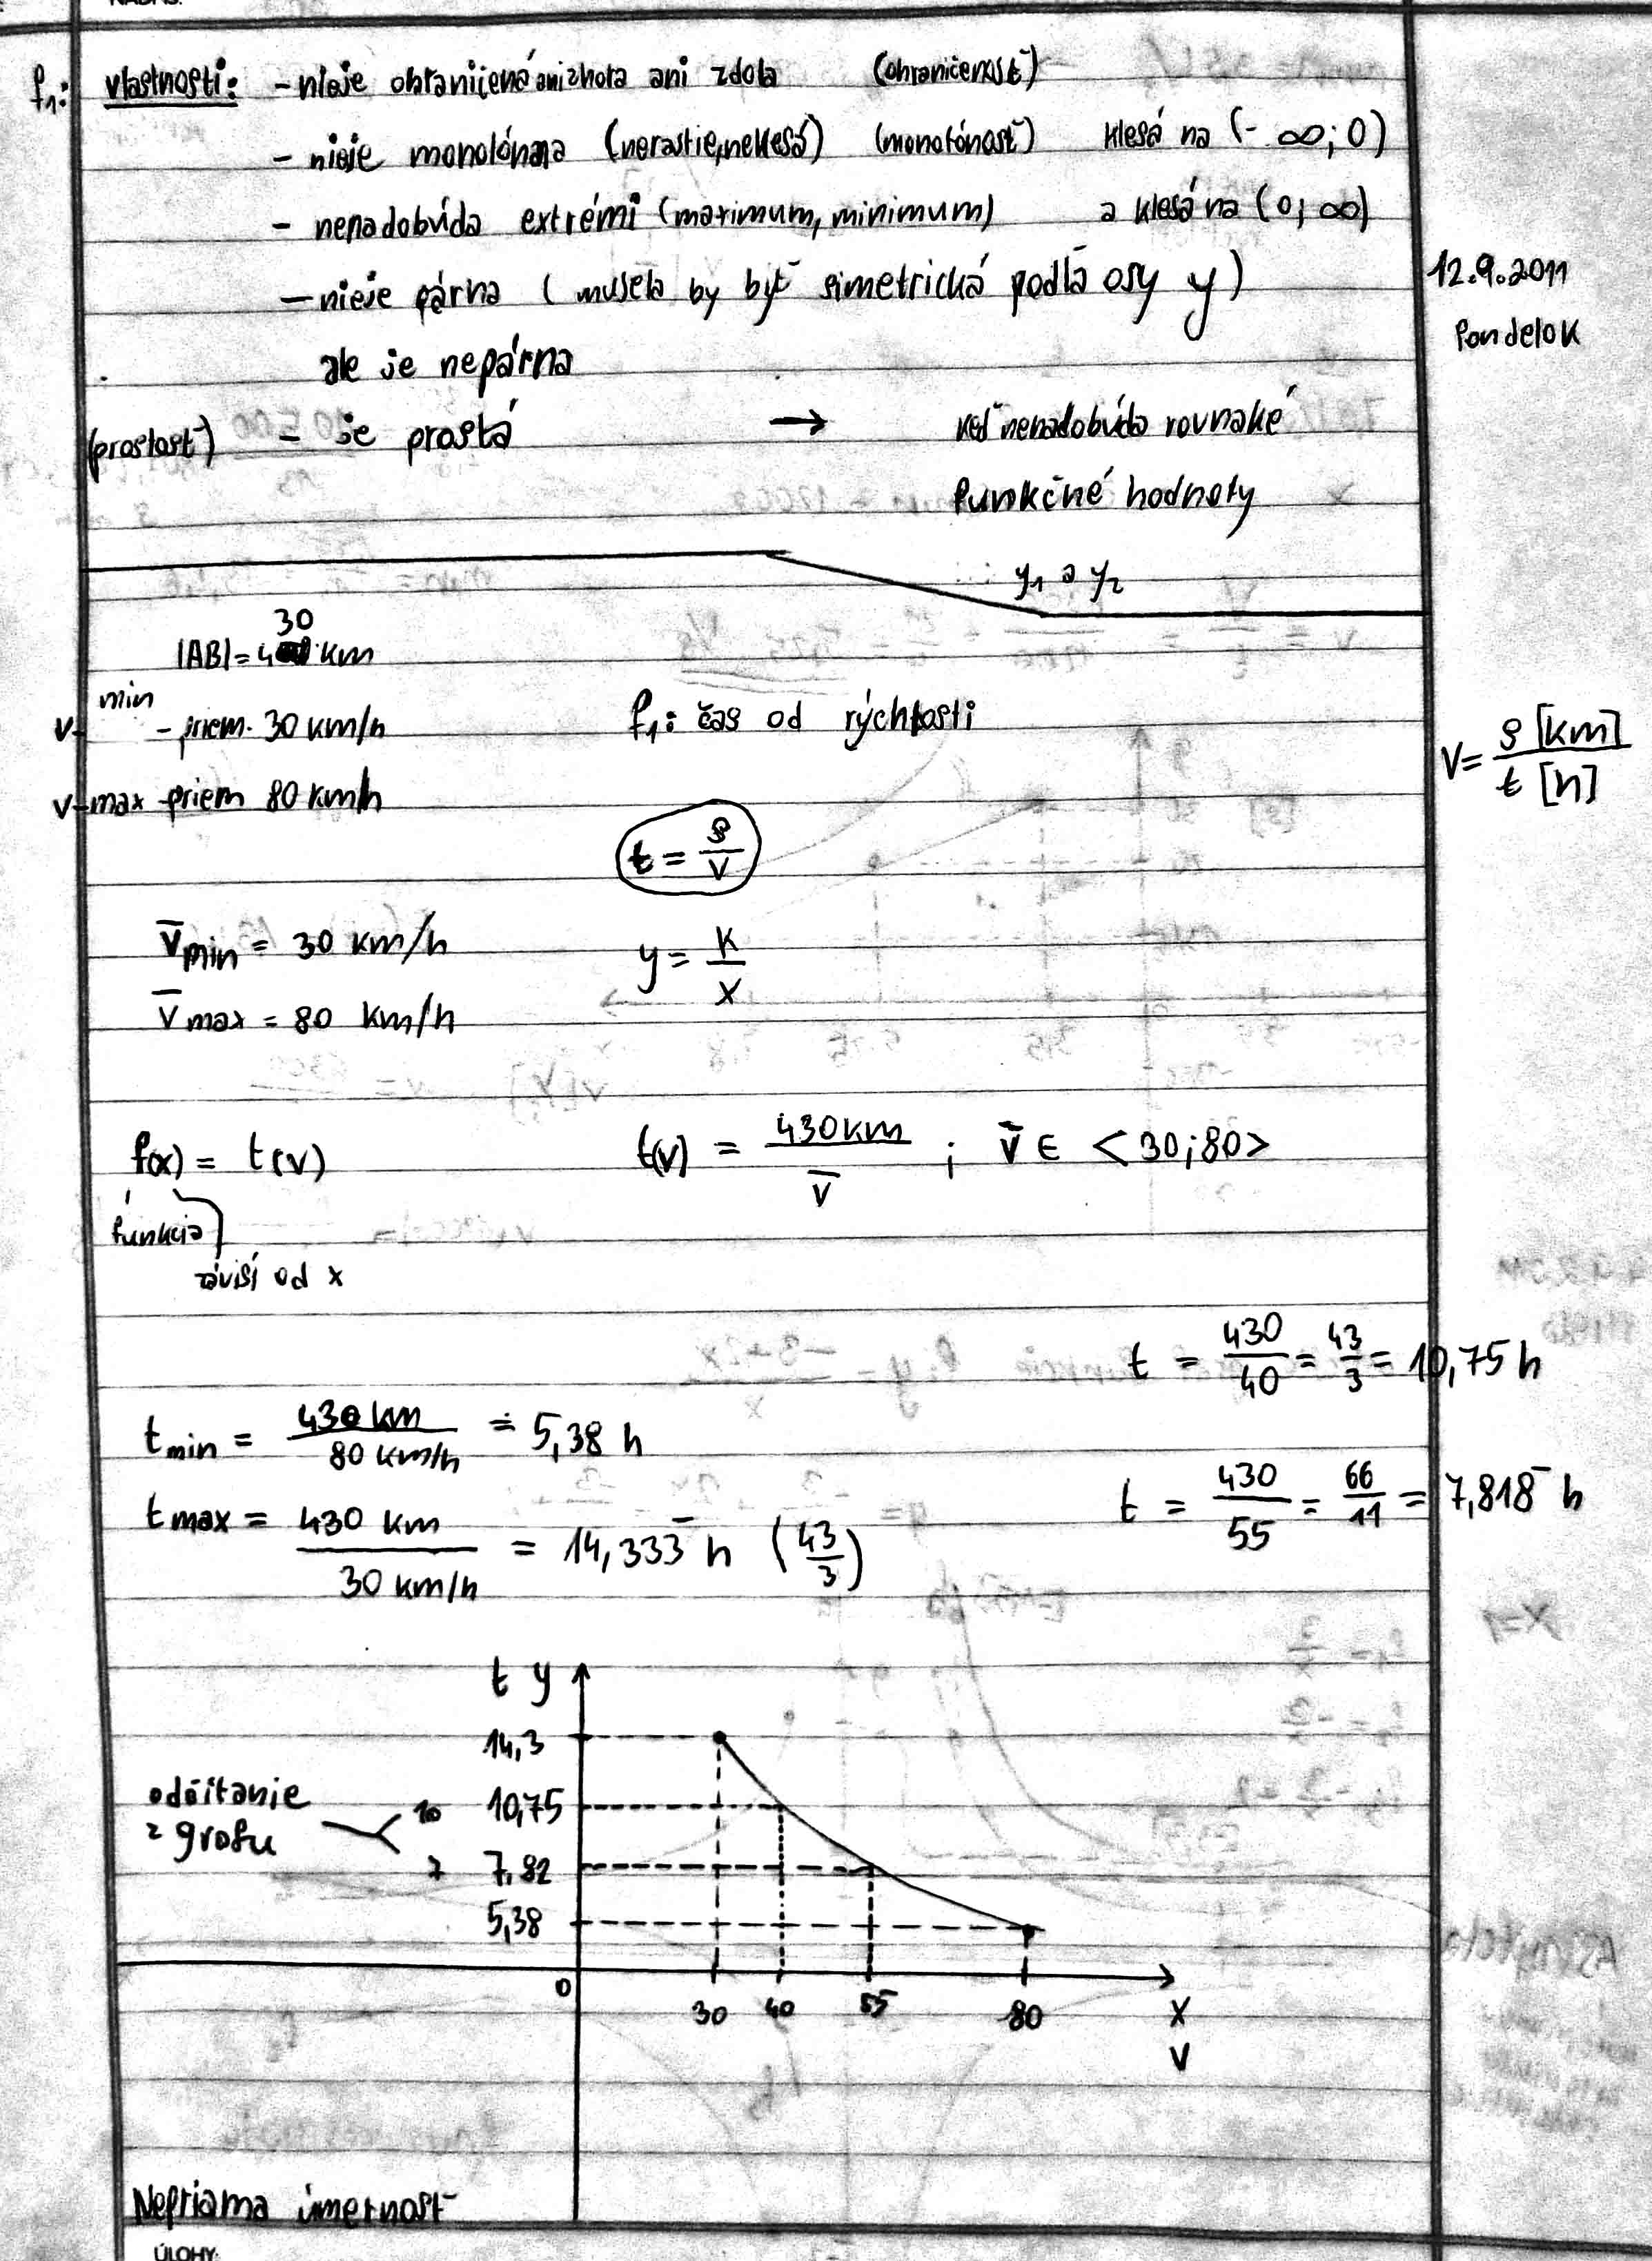 f₁: vlastnosti: - nieje ohraničená ani zhora ani zdola (ohraničenosť)
- nieje monotónna (nerastie, neklesá) (monotónosť) klesá na (-∞; 0)
- nenadobúda extrémi (maximum, minimum) a klesá na (0; ∞)
- nieje párna ( musela by byť simetrická podľa osy y )
12.9.2011
Pondelok
ale je nepárna
(prostosť) - je prostá → keď nenadobúda rovnaké
funkčné hodnoty
y₁ a y₂
30
|AB| = 4 km
v- min - priem. 30 km/h
f₁: čas od rýchlosti
v-max - priem 80 km/h
V = s [km] / t [h]
t = s / v
v̄ min = 30 km/h
y = k / x
v̄ max = 80 km/h
f(x) = t(v)
t(v) = 430km / v̄ ; v̄ ∈ <30;80>
funkcia
závisí od x
t = 430/40 = 43/3 = 10,75 h
t min = 430 km / 80 km/h ≐ 5,38 h
t = 430/55 = 66/11 = 7,818‾ h
t max = 430 km / 30 km/h = 14,333‾ h (43/3)
t y
14,3
odčítanie
z grafu
10 10,75
7 7,82
5,38
0 30 40 55 80 x
v
Nepriama úmernosť
ÚLOHY: